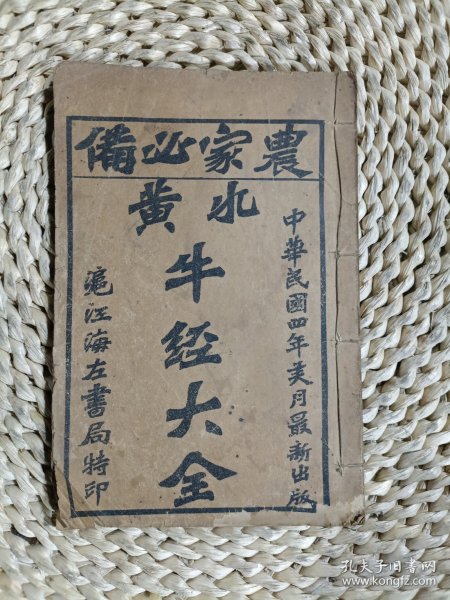 農家必備
水黃
牛經大全
中華民國四年美月最新出版
滬江海左書局特印
孔夫子旧书网
www.kongfz.com